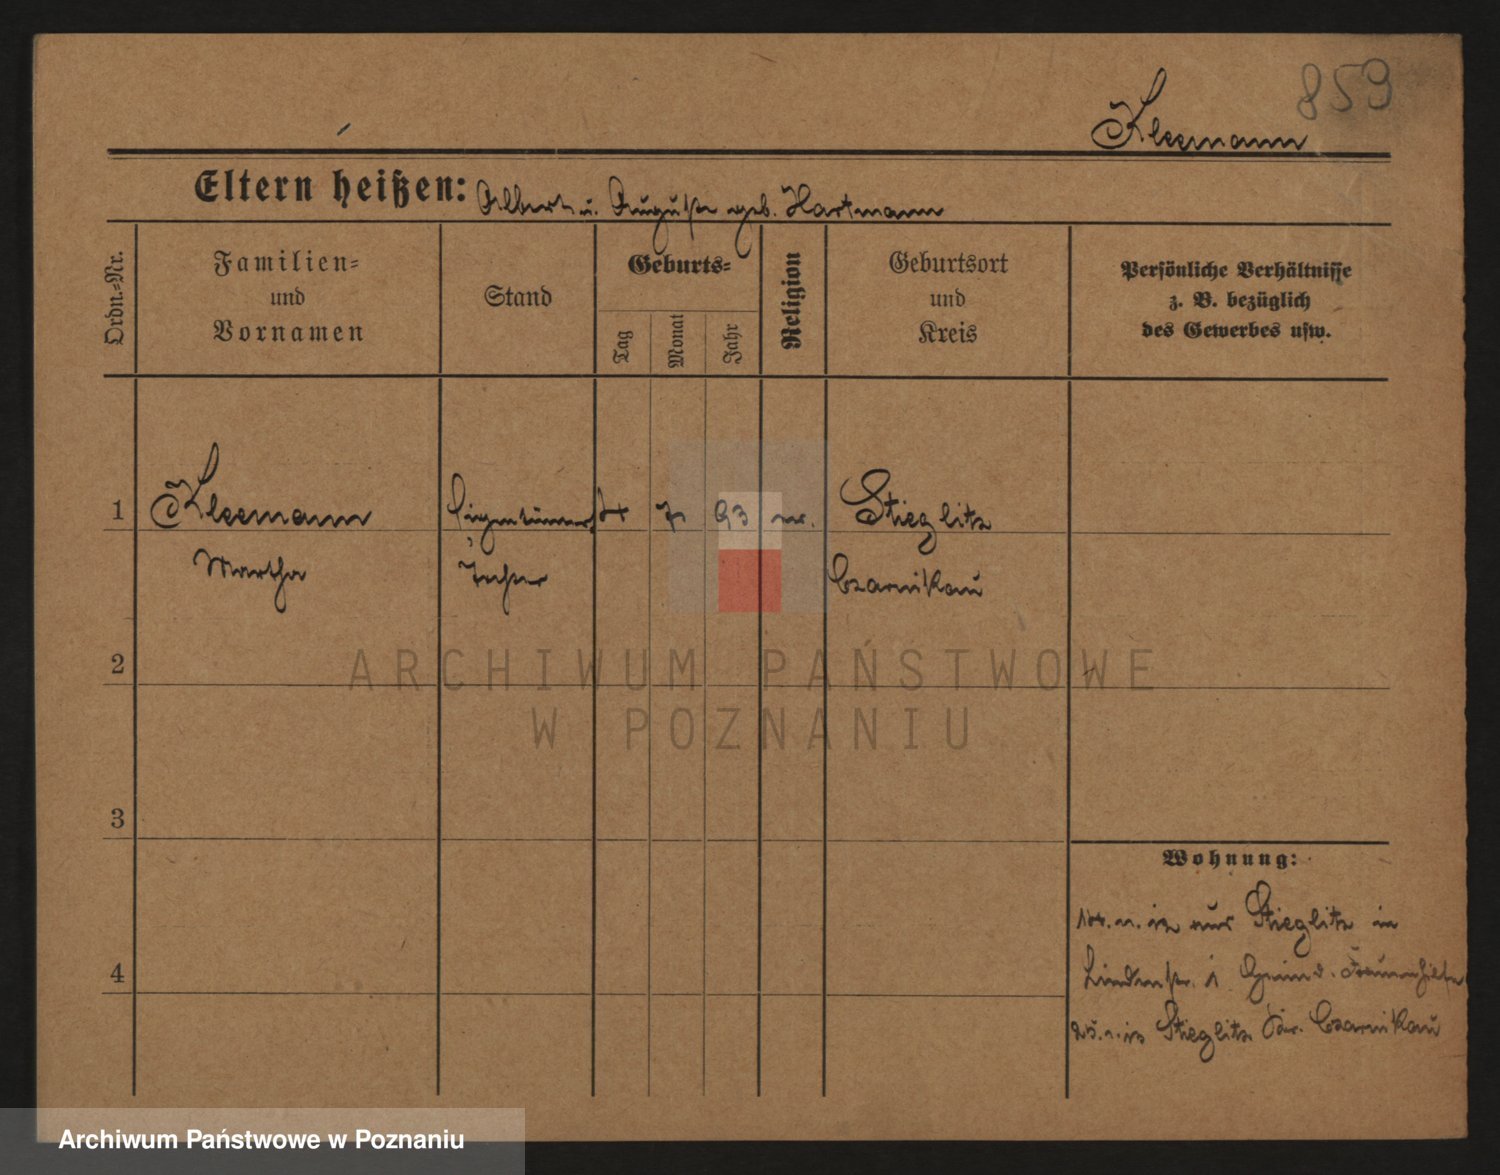 859
Kleemann
Eltern heißen: Albert u. Auguste geb. Hartmann
Ordn.-Nr.
Familien-
und
Vornamen
Stand
Geburts-
Tag
Monat
Jahr
Religion
Geburtsort
und
Kreis
Persönliche Verhältnisse
z. B. bezüglich
des Gewerbes usw.
1 Kleemann Eigentümer 4 7 93 Stieglitz
Martha Czarnikau
2
ARCHIWUM PAŃSTWOWE
W POZNANIU
3
Wohnung:
Stieglitz in
Lindenstr. 1
4
Stieglitz Kr. Czarnikau
Archiwum Państwowe w Poznaniu